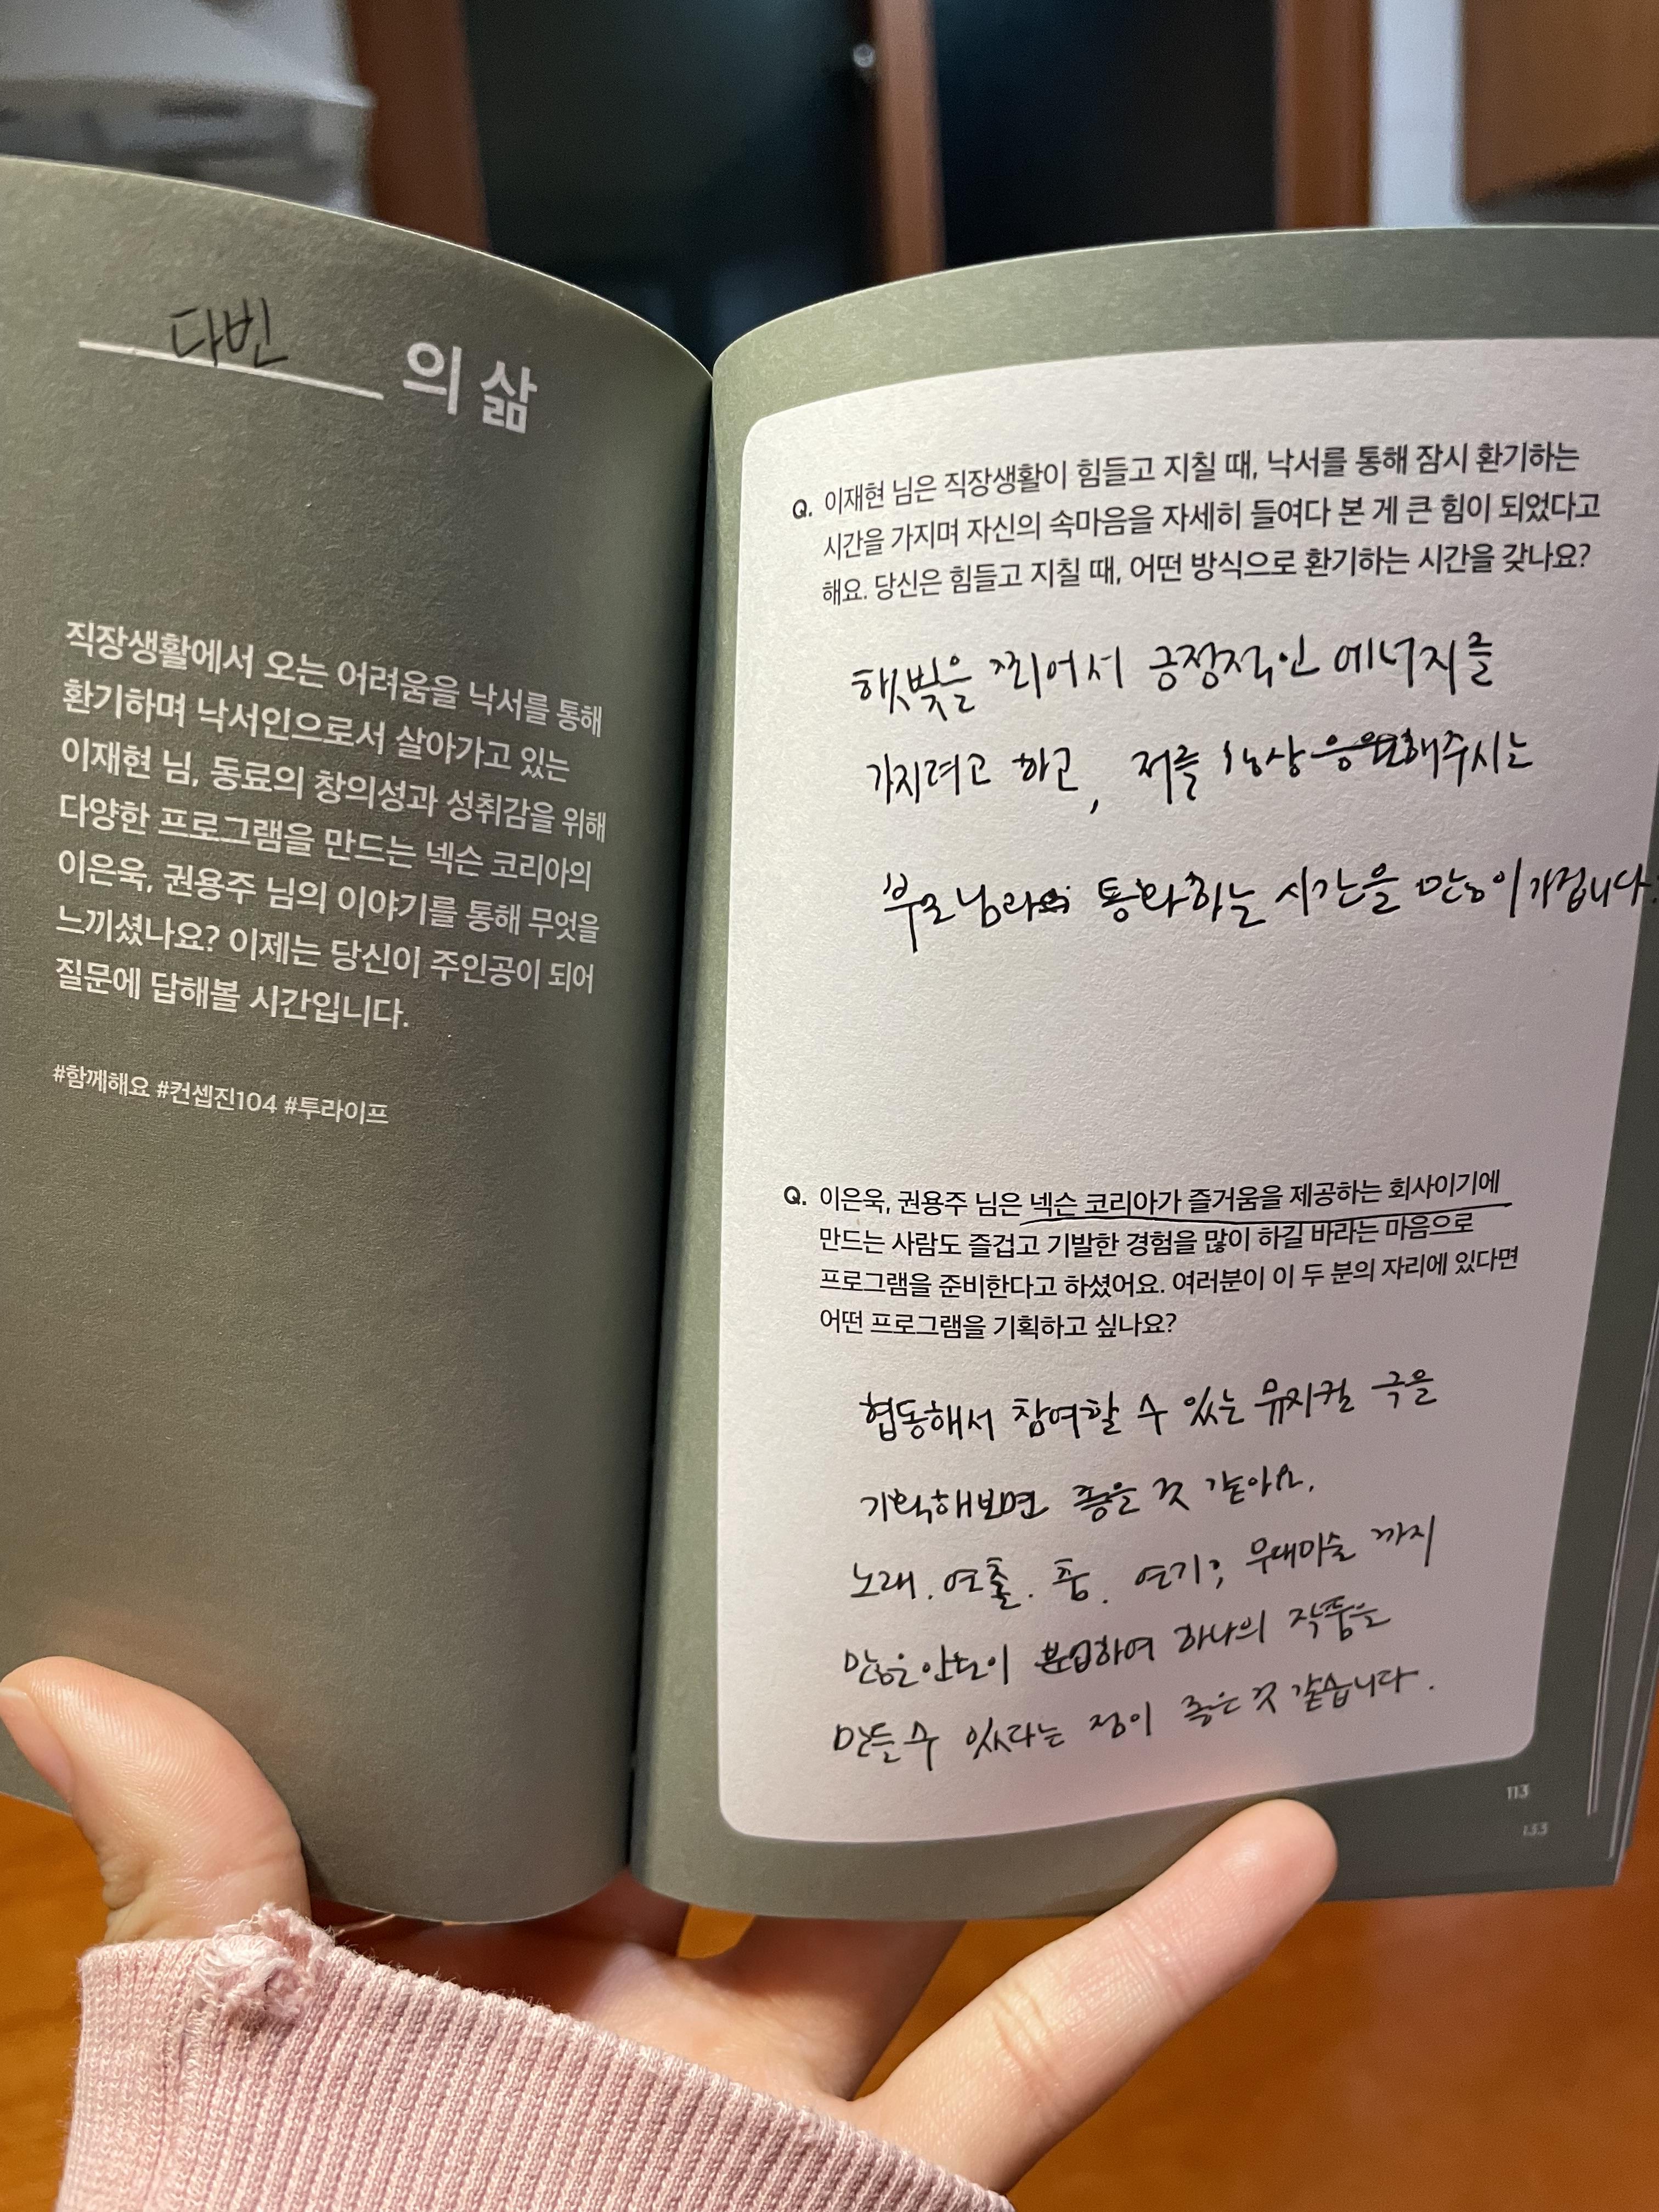 다빈 의 삶
직장생활에서 오는 어려움을 낙서를 통해
환기하며 낙서인으로서 살아가고 있는
이재현 님, 동료의 창의성과 성취감을 위해
다양한 프로그램을 만드는 넥슨 코리아의
이은욱, 권용주 님의 이야기를 통해 무엇을
느끼셨나요? 이제는 당신이 주인공이 되어
질문에 답해볼 시간입니다.
#함께해요 #컨셉진104 #투라이프
Q. 이재현 님은 직장생활이 힘들고 지칠 때, 낙서를 통해 잠시 환기하는
시간을 가지며 자신의 속마음을 자세히 들여다 본 게 큰 힘이 되었다고
해요. 당신은 힘들고 지칠 때, 어떤 방식으로 환기하는 시간을 갖나요?
햇빛을 쬐어서 긍정적인 에너지를
가지려고 하고, 저를 항상 응원해주시는
부모님과의 통화하는 시간을 많이 가집니다.
Q. 이은욱, 권용주 님은 넥슨 코리아가 즐거움을 제공하는 회사이기에
만드는 사람도 즐겁고 기발한 경험을 많이 하길 바라는 마음으로
프로그램을 준비한다고 하셨어요. 여러분이 이 두 분의 자리에 있다면
어떤 프로그램을 기획하고 싶나요?
협동해서 참여할 수 있는 뮤지컬 극을
기획해보면 좋을 것 같아요.
노래. 연출. 춤. 연기, 무대미술 까지
많은 인원이 분업하여 하나의 작품을
만들 수 있다는 점이 좋은 것 같습니다.
113
133